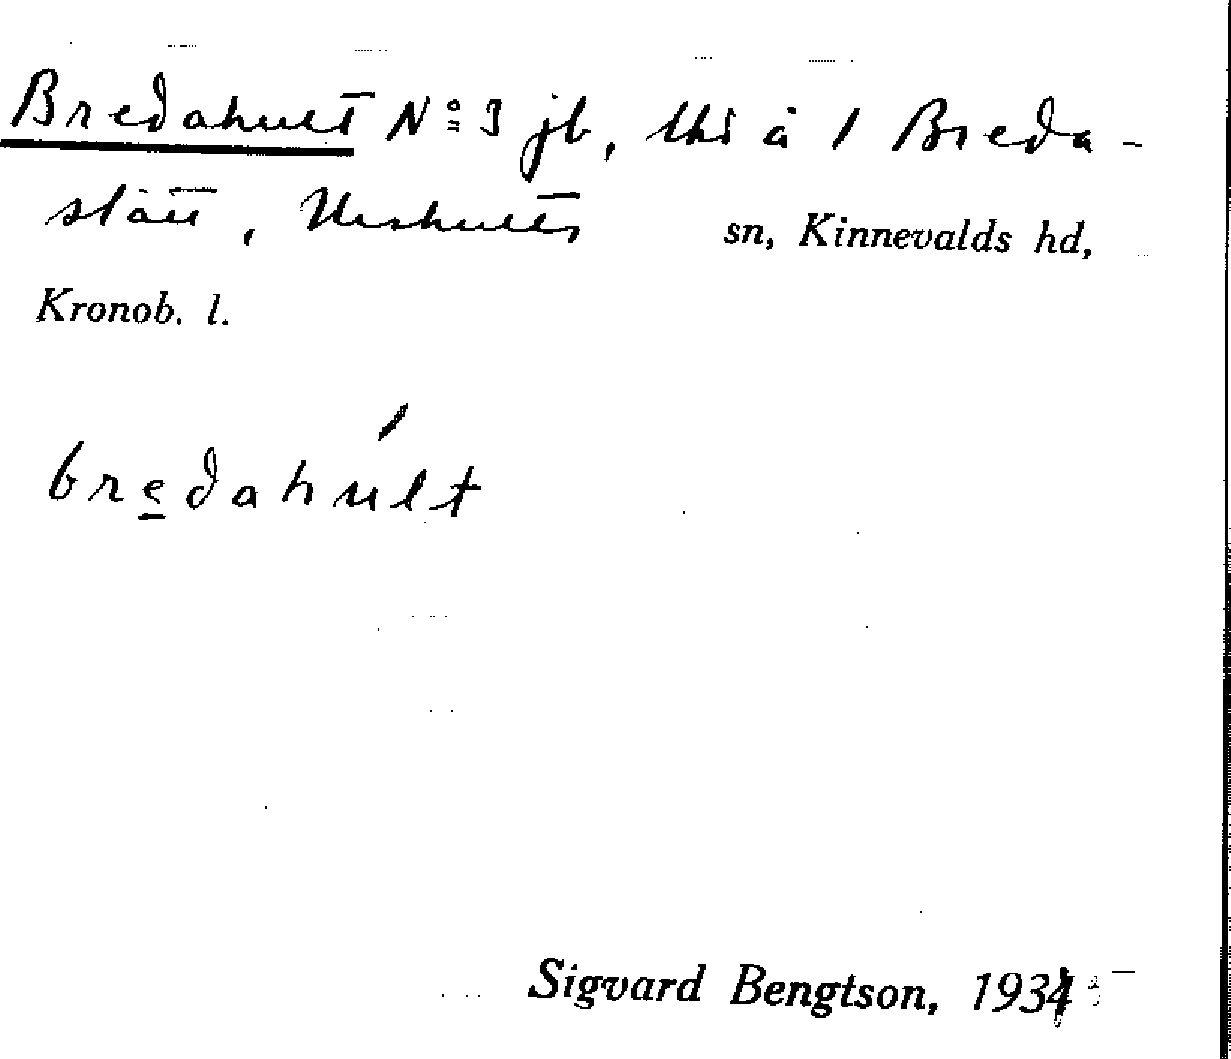 Bredahult No 3 jb, lhr å 1 Breda-
slätt, Urshults sn, Kinnevalds hd,
Kronob. l.
bredahult
Sigvard Bengtson, 1935